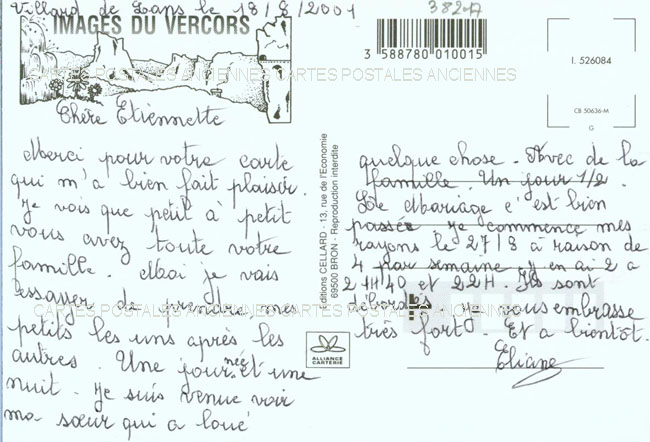 Villard de Lans le 18/8/2001
382A
IMAGES DU VERCORS
3 588780 010015
I. 526084
CB 50636-M
G
CARTES POSTALES ANCIENNES CARTES POSTALES ANCIENNES
Chère Etiennette
Merci pour votre carte
qui m'a bien fait plaisir.
Je vois que petit à petit
vous avez toute votre
famille. Moi je vais
essayer de prendre mes
petits les uns après les
autres. Une journée et une
nuit. Je suis venue voir
ma sœur qui a loué
éditions CELLARD - 13, rue de l'Economie
69500 BRON - Reproduction interdite
quelque chose. Avec de la
famille. Un jour 1/2.
Le Mariage c'est bien
passée. Je commence mes
rayons le 27/8 à raison de
4 par semaine y en ai 2 à
21H40 et 22H. Ils sont
débordés. Je vous embrasse
très fort. Et a bientôt.
Eliane
CARTES POSTALES ANCIENNES CARTES POSTALES ANCIENNES
ALLIANCE
CARTERIE